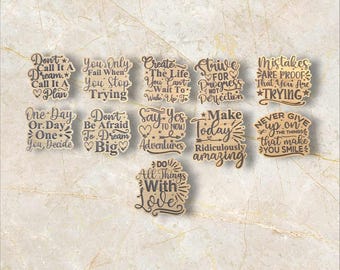 Don't
Call It A
Dream
Call It A
Plan
You Only
Fail When
You Stop
Trying
Create
The Life
You Can't
Wait To
Wake Up To
Strive
FOR
Progress
NOT
Perfection
Mistakes
ARE PROOF
That You Are
TRYING
One Day
Or Day
One
You Decide
Don't
Be Afraid
To Dream
Big
Say Yes
TO NEW
Adventures
Make
Today
Ridiculously
amazing
NEVER GIVE
up on
THE THINGS
that make
YOU SMILE
DO
All Things
With
Love